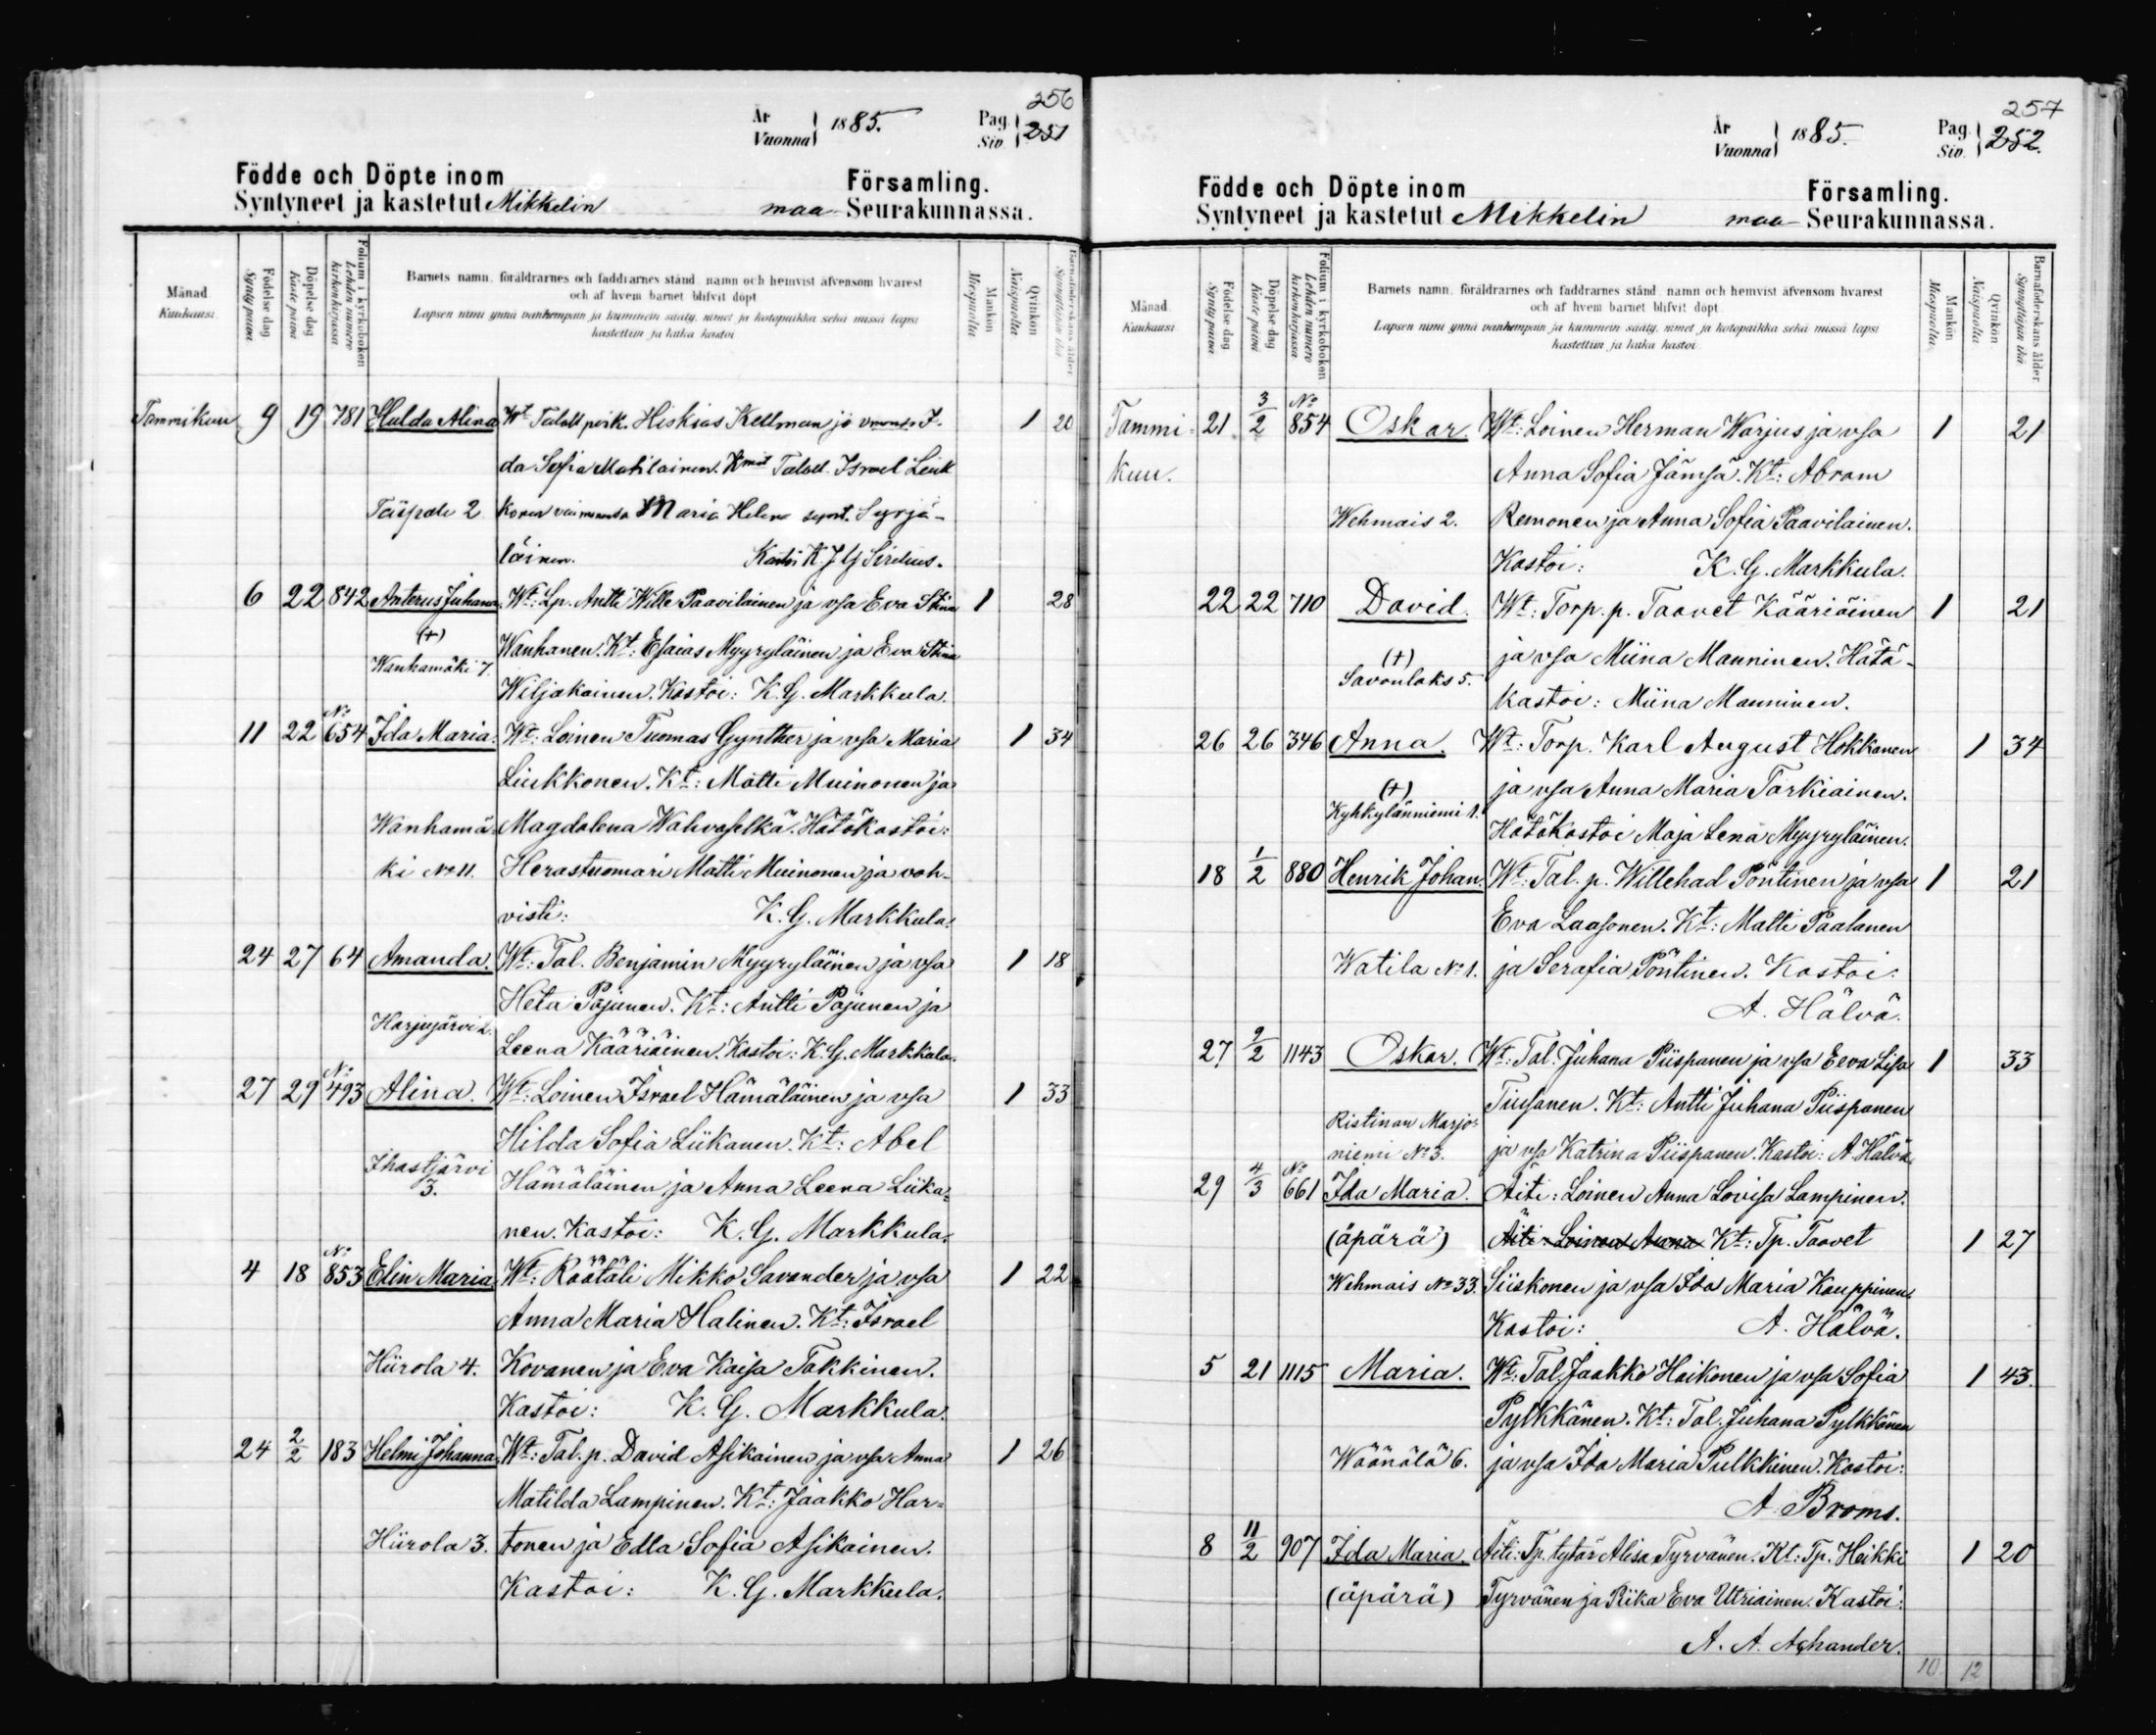 256
År
Vuonna 1885. Pag. Siv. 251
Födde och Döpte inom Församling.
Syntyneet ja kastetut Mikkelin maa- Seurakunnassa.
Månad
Kuukausi
Födelse dag
Synty päivä
Döpelse dag
Kaste päivä
Folium i kyrkoboken
Lehden numero
kirkonkirjassa
Barnets namn, föräldrarnes och faddrarnes stånd, namn och hemvist äfvensom hvarest
och af hvem barnet blifvit döpt
Lapsen nimi ynnä vanhempain ja kummein sääty, nimet ja kotopaikka sekä missä lapsi
kastettiin ja kuka kastoi
Mankön
Miespuolta
Qvinkön
Naispuolta
Barnaföderskans ålder
Synnyttäjän ikä
Tammikuu 9 19 781 Hulda Alina Wt Taloll. poik. Hiskias Kellman ja vmonsa I- 1 20
da Sofia Matilainen. Kmit Taloll. Israel Leik
Täipale 2 konen vaimonsa Maria Helena synt. Syrjä-
läinen. Kastoi K J G Sirelius.
6 22 842 Anterus Juhana. Wt: Lp. Antti Wille Paavilainen ja vsa Eva Stina 1 28
(+) Wanhanen. Kt: Esaias Myyryläinen ja Eva Stina
Wanhamäki 7. Wiljakainen. Kastoi: K. G. Markkula.
11 22 No 654 Ida Maria. Wt: Loinen Tuomas Gynther ja vsa Maria 1 34
Liukkonen. Kt: Matti Muinonen ja
Wanhamä- Magdalena Wahvaselkä. Hätäkastoi:
ki No 11. Herastuomari Matti Muinonen ja vah-
visti: K. G. Markkula.
24 27 64 Amanda. Wt: Tal. Benjamin Myyryläinen ja vsa 1 18
Heta Pajunen. Kt: Antti Pajunen ja
Harjujärvi 2. Leena Kääriäinen. Kastoi: K. G. Markkula.
27 29 No 493 Alina. Wt: Loinen Israel Hämäläinen ja vsa 1 33
Hilda Sofia Liikanen. Kt: Abel
Ihastjärvi 3. Hämäläinen ja Anna Leena Liika-
nen. Kastoi: K. G. Markkula.
4 18 No 853 Elin Maria. Wt: Räätäli Mikko Savander ja vsa 1 22
Anna Maria Halinen. Kt: Israel
Hiirola 4. Kovanen ja Eva Kaisa Takkinen.
Kastoi: K. G. Markkula.
24 2/2 183 Helmi Johanna. Wt: Tal. p. David Asikainen ja vsa Anna 1 26
Matilda Lampinen. Kt: Jaakko Har-
Hiirola 3. tonen ja Edla Sofia Asikainen.
Kastoi: K. G. Markkula.
257
År
Vuonna 1885. Pag. Siv. 252.
Födde och Döpte inom Församling.
Syntyneet ja kastetut Mikkelin maa- Seurakunnassa.
Månad
Kuukausi
Födelse dag
Synty päivä
Döpelse dag
Kaste päivä
Folium i kyrkoboken
Lehden numero
kirkonkirjassa
Barnets namn, föräldrarnes och faddrarnes stånd, namn och hemvist äfvensom hvarest
och af hvem barnet blifvit döpt
Lapsen nimi ynnä vanhempain ja kummein sääty, nimet ja kotopaikka sekä missä lapsi
kastettiin ja kuka kastoi
Mankön
Miespuolta
Qvinkön
Naispuolta
Barnaföderskans ålder
Synnyttäjän ikä
Tammi- 21 3/2 No 854 Oskar. Wt: Loinen Herman Warjus ja vsa 1 21
kuu. Anna Sofia Jämsä. Kt: Abram
Wehmais 2. Remonen ja Anna Sofia Paavilainen.
Kastoi: K. G. Markkula.
22 22 710 David. Wt: Torp. p. Taavet Kääriäinen 1 21
(+) ja vsa Miina Manninen. Hätä-
Savonlaks 5. kastoi: Miina Manninen.
26 26 346 Anna. Wt: Torp. Karl August Hokkanen 1 34
(+) ja vsa Anna Maria Tarkiainen.
Kyhkylänniemi 1. Hätäkastoi Maja Lena Myyryläinen.
18 1/2 880 Henrik Johan. Wt: Tal. p. Willehad Pöntinen ja vsa 1 21
Eva Laasonen. Kt: Matti Paalanen
Watila No 1. ja Serafia Pöntinen. Kastoi:
A. Hälvä.
27 9/2 1143 Oskar. Wt: Tal. Juhana Piispanen ja vsa Eeva Lisa 1 33
Tiusanen. Kt: Antti Juhana Piispanen
Ristinan Marjo-
niemi No 3. ja vsa Katrina Piispanen. Kastoi: A. Hälvä.
29 4/3 No 661 Ida Maria. Äiti: Loinen Anna Lovisa Lampinen.
(äpärä) Äiti: Loinen Anna Kt: Tp. Taavet 1 27
Wehmais No 33. Siiskonen ja vsa Ida Maria Kauppinen.
Kastoi: A. Hälvä.
5 21 1115 Maria. Wt: Tal. Jaakko Haikonen ja vsa Sofia 1 43.
Pylkkänen. Kt: Tal. Juhana Pylkkänen
Wäänälä 6. ja vsa Ida Maria Pulkkinen. Kastoi:
A. Broms.
8 11/2 907 Ida Maria. Äiti: Tp. tytär Alisa Tyrvänen. Kt: Tp. Heikki 1 20
(äpärä) Tyrvänen ja Riika Eva Utriainen. Kastoi:
A. A. Aghander.
10 12